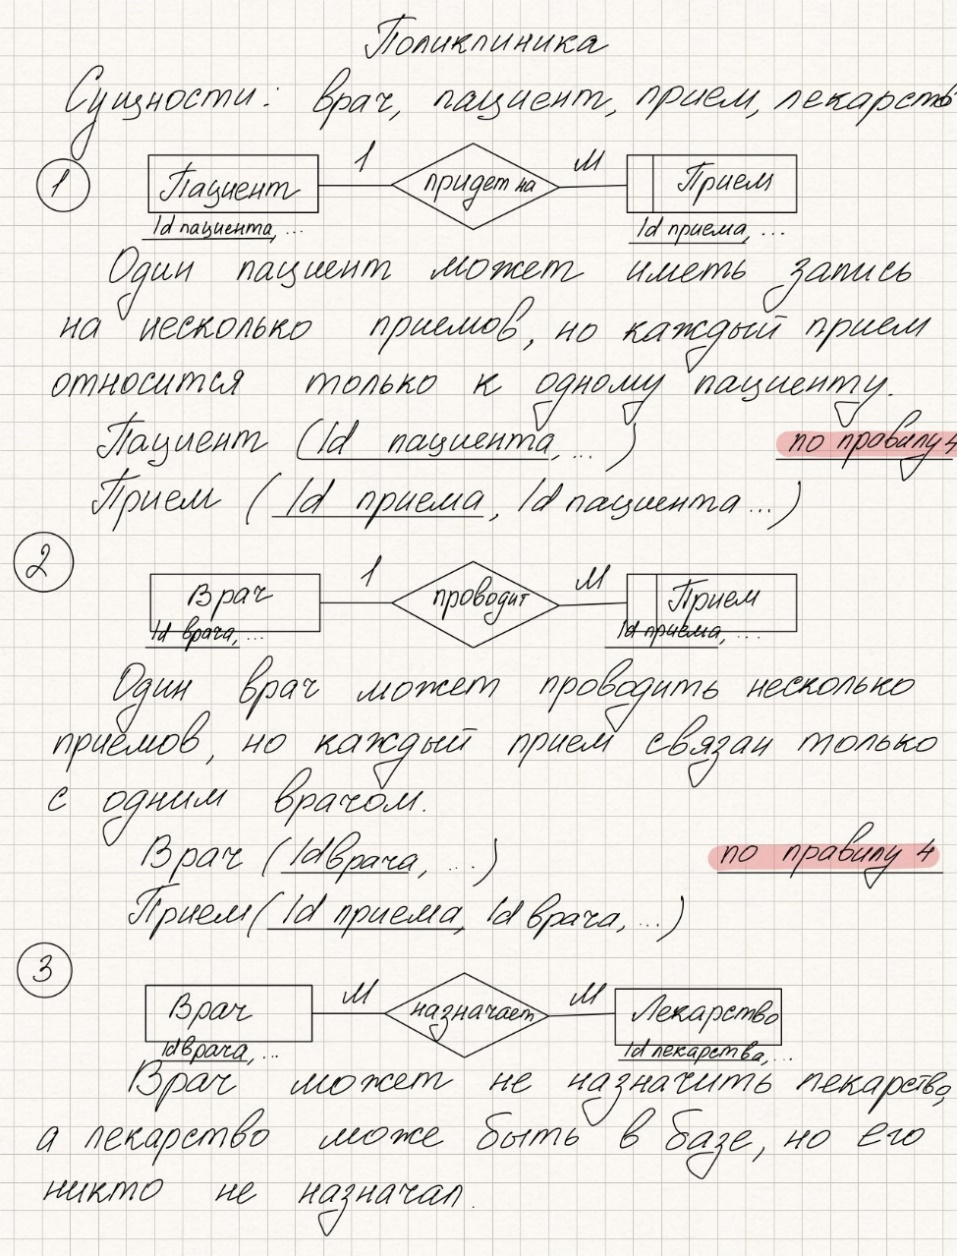 Поликлиника
Сущности: врач, пациент, прием, лекарств
1 Пациент 1 придет на М Прием
Id пациента, ... Id приема, ...
Один пациент может иметь запись
на несколько приемов, но каждый прием
относится только к одному пациенту.
Пациент (Id пациента, ...) по правилу 4
Прием (Id приема, Id пациента ...)
2 Врач 1 проводит М Прием
Id врача, ... Id приема, ...
Один врач может проводить несколько
приемов, но каждый прием связан только
с одним врачом.
Врач (Id врача, ...) по правилу 4
Прием (Id приема, Id врача, ...)
3 Врач М назначает М Лекарство
Id врача, ... Id лекарства, ...
Врач может не назначить лекарство,
а лекарство може быть в базе, но его
никто не назначал.